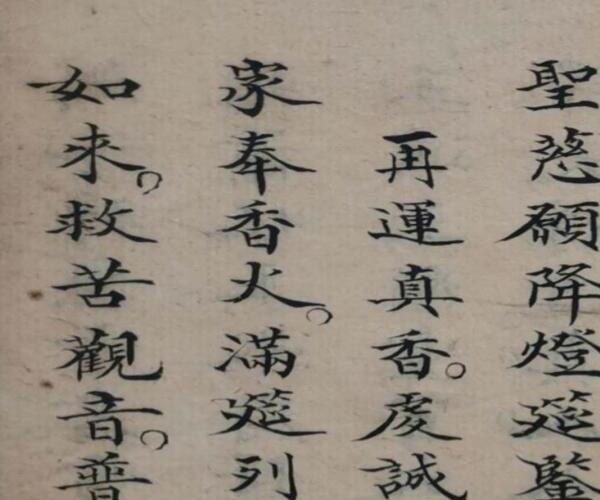 聖慈願降燈筵鑒
再運真香。虔誠
家奉香火。滿筵列
如來。救苦觀音。普